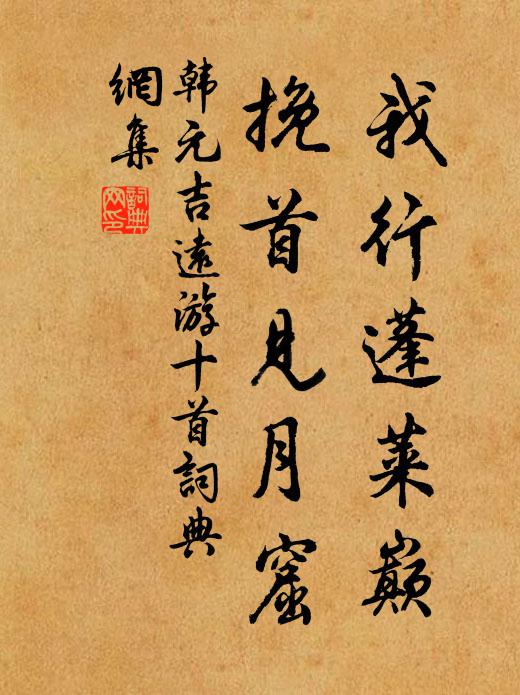 我行蓬莱巅
挽首见月窟
韩元吉遠游十首詞典
網集
詞典網印